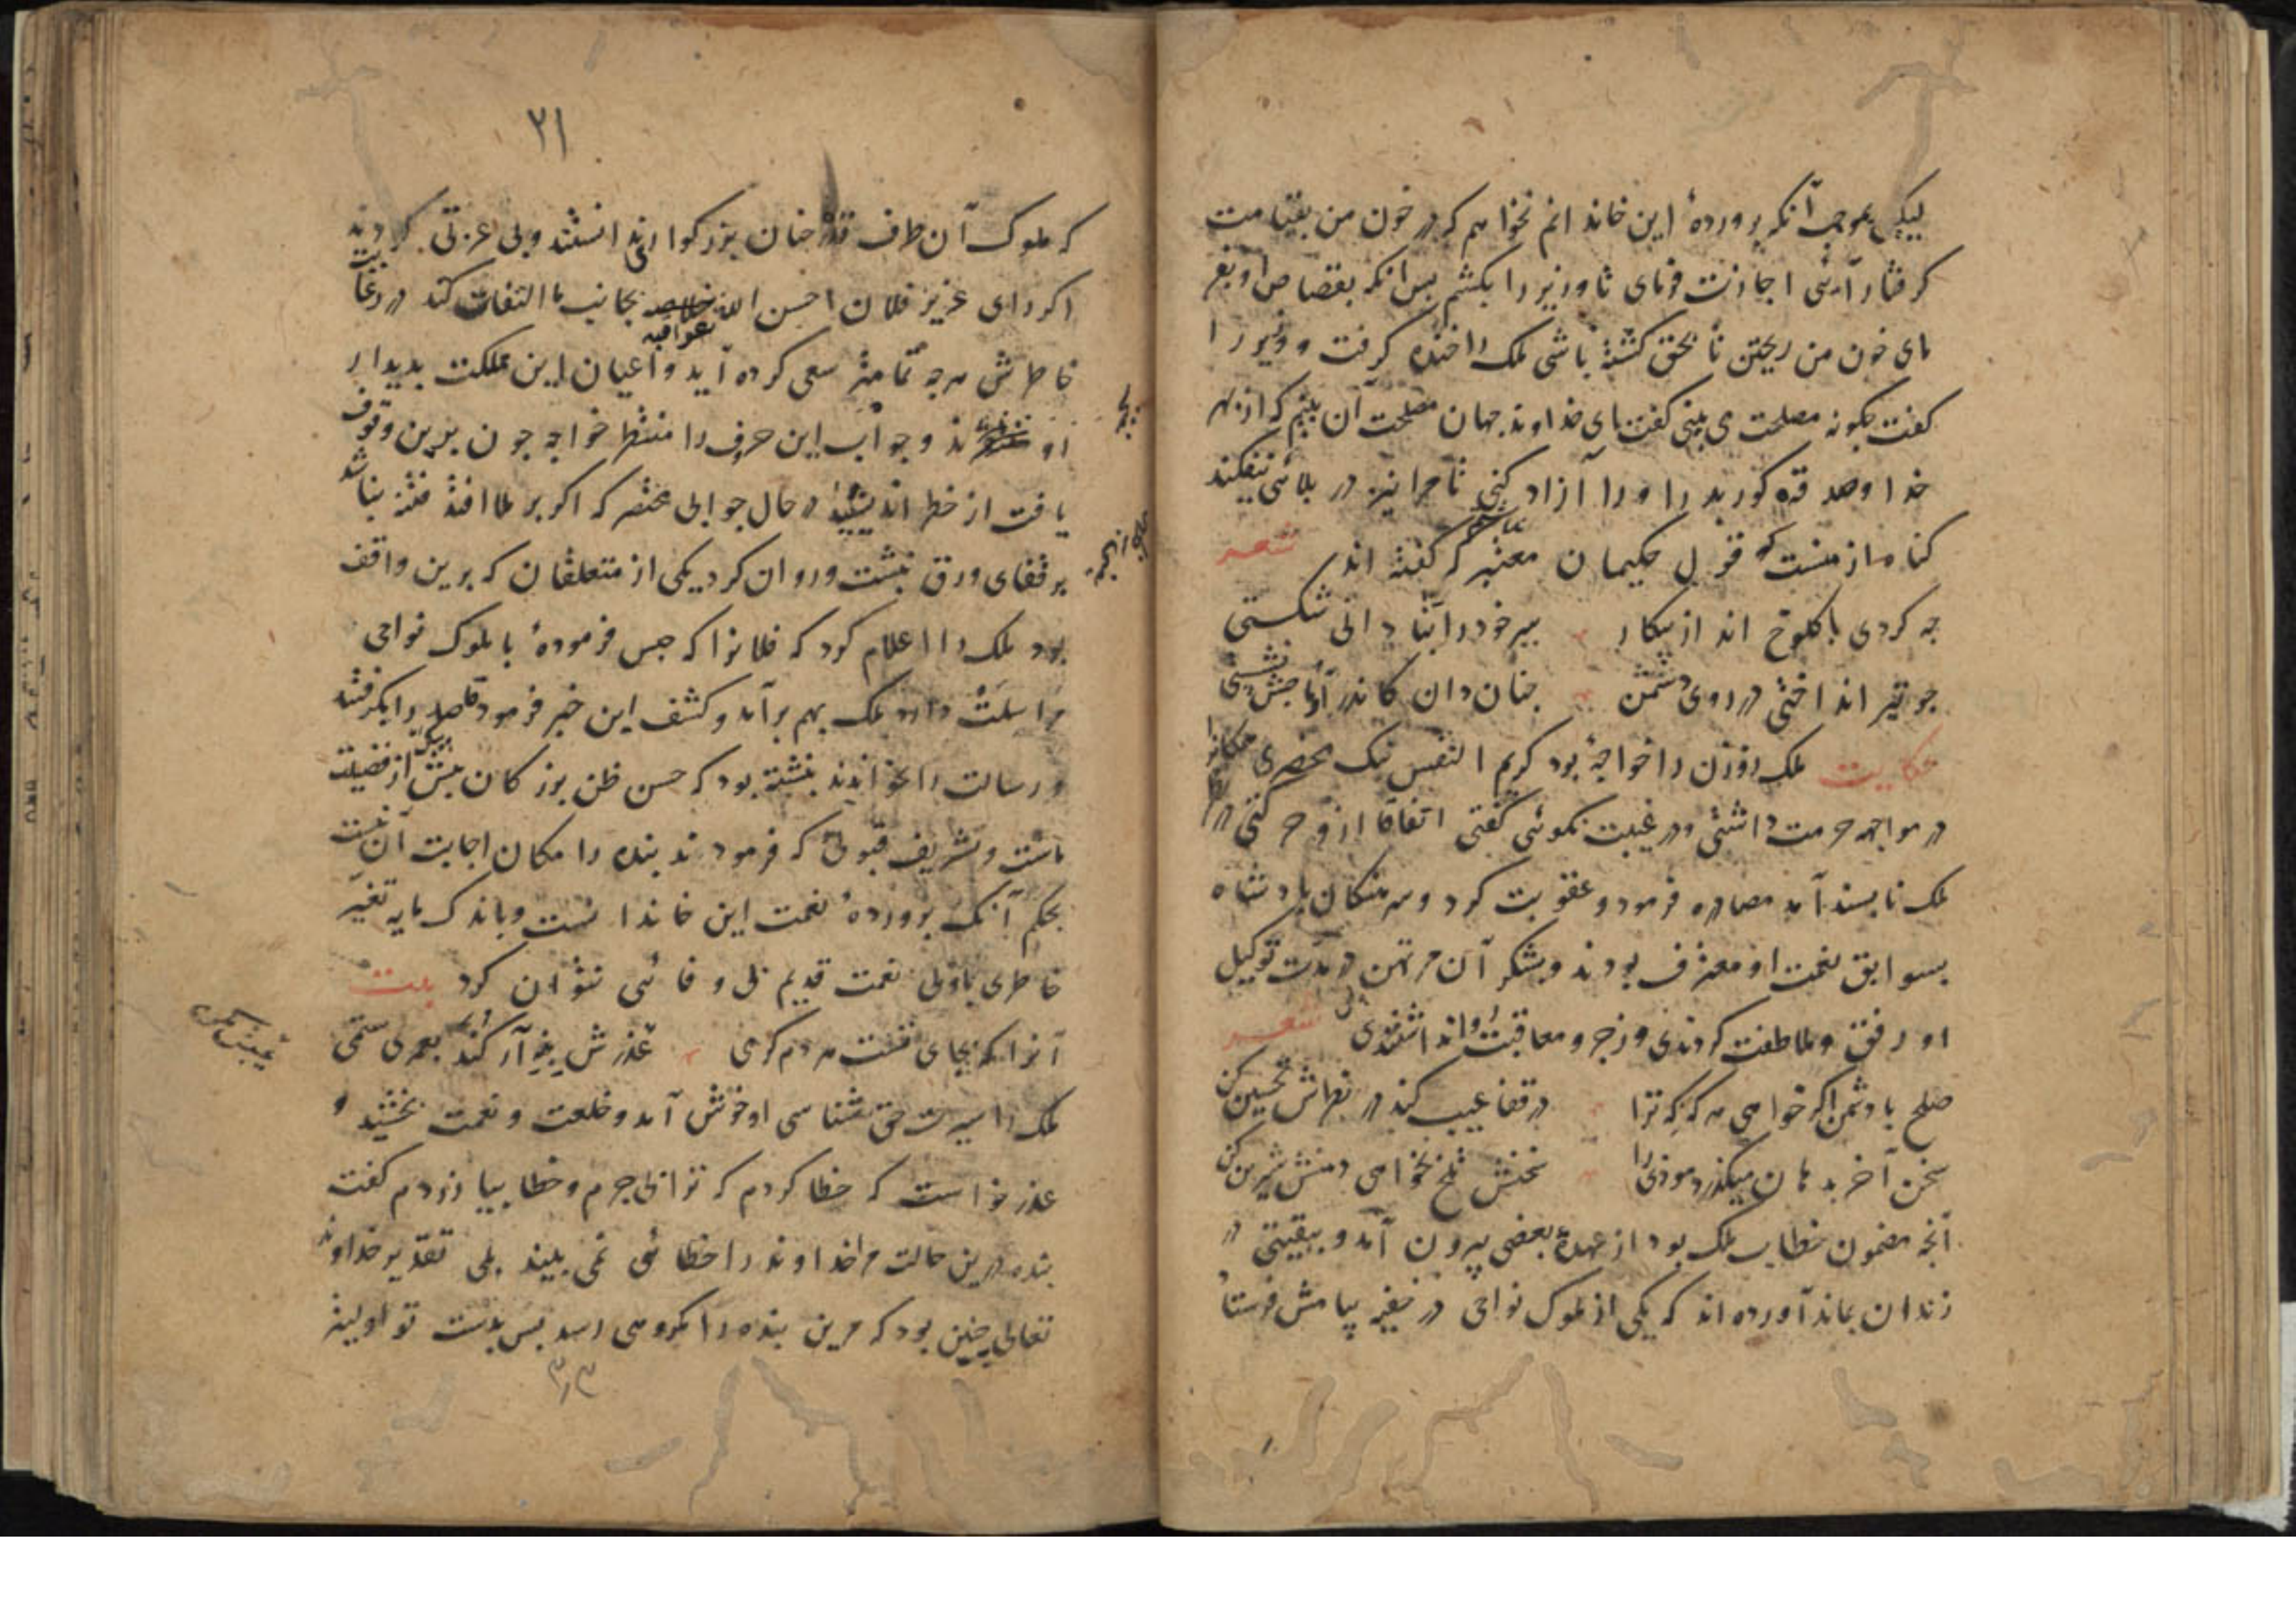 لیکن بموجب آنکه پروردهٔ این خاندانم نخواهم که در خون من بقیامت
کرفتار آئی اجازت فرمای تا وزیر را بکشم پس انکه بقصاص او بفر
مای خون من ریختن تا بحق کشته باشی ملک را خنده کرفت و وزیر را
کفت جکونه مصلحت می بینی کفت ای خداوند جهان مصلحت آن بینم که از بهر
خدا و صدقه کور پدر او را آزاد کنی تا مرا نیز در بلائی نیفکند
کناه از منست که قول حکیمان معتبر که کفته اند شعر
جه کردی با کلوخ انداز پیکار سر خود را بنادانی شکستی
جو تیر انداختی در روی دشمن جنان دان کاندر آماجش نشستی
حکایت ملک زوزن را خواجهٔ بود کریم النفس نیک محضری همکنانرا
در مواجهه حرمت داشتی و در غیبت نکوئی کفتی اتفاقا ازو حرکتی در
ملک نابسند آمد مصادره فرمود و عقوبت کرد و سرهنکان پادشاه
بسوابق نعمت او معترف بودند و بشکر آن مرتهن در مدت توکیل
او رفق و ملاطفت کردندی و زجر و معاقبت روا نداشتندی شعر
صلح با دشمن اکر خواهی هر که که ترا در قفا عیب کند در نظرش تحسین کن
سخن آخر بدهان میکذرد موذی را سخنش تلخ نخواهی دهنش شیرین کن
آنجه مضمون خطاب ملک بود از عهدهٔ بعضی بیرون آمد و ببقیتی در
زندان بماند آورده اند که یکی از ملوک نواحی در خفیه پیامش فرستاد
۳۱
که ملوک آن طرف قدر جنان بزرکوار ندانستند و بی عزتی کردند
اکر رای عزیز فلان احسن الله عواقبه بجانب ما التفات کند در رعایت
خاطرش هرجه تمامتر سعی کرده آید و اعیان این مملکت بدیدار
او اند و جواب این حرف را منتظر خواجه جون برین وقوف
یافت از خطر اندیشید در حال جوابی مختصر که اکر بر ملا افتد فتنه نباشد
بر قفای ورق نبشت و روان کرد یکی از متعلقان که برین واقف
بود ملک را اعلام کرد که فلانرا که حبس فرمودهٔ با ملوک نواحی
مراسلت دارد ملک بهم برآمد و کشف این خبر فرمود قاصد را بکرفتند
و رسالت را بخواندند نبشته بود که حسن ظن بزرکان بیش از فضیلت
ماست و تشریف قبولی که فرمودند بنده را امکان اجابت آن نیست
بحکم آنک پروردهٔ نعمت این خاندانست و باندک مایه تغیر
خاطری با ولی نعمت قدیم بی وفائی نتوان کرد بیت
آنرا که بجای تست هر دم کرمی عذرش بنه ار کند بعمری ستمی
ملک را سیرت حق شناسی او خوش آمد و خلعت و نعمت بخشید و
عذر خواست که خطا کردم که ترا بی جرم و خطا بیازردم کفت
بنده درین حالت مر خداوند را خطائی نمی بیند بلی تقدیر خداوند
تعالی جنین بود که مرین بنده را مکروهی رسد پس بدست تو اولیتر